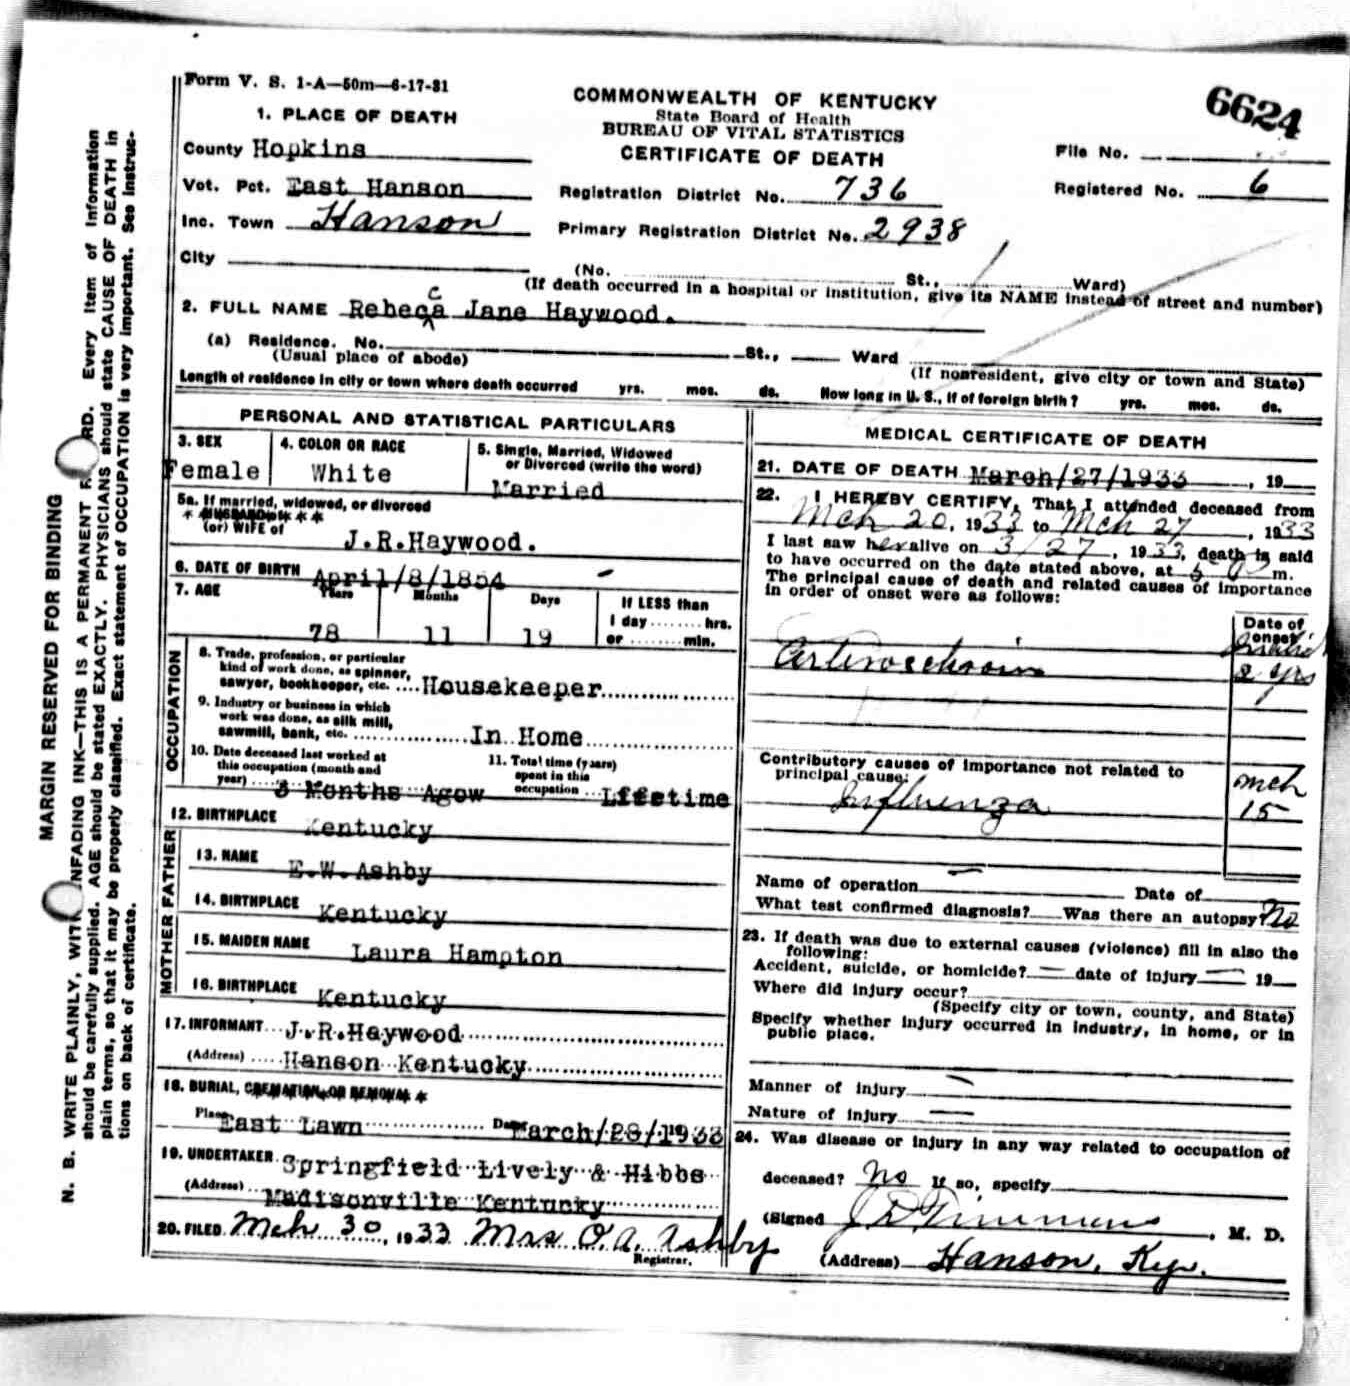 Form V. S. 1-A—50m—6-17-31
6624
COMMONWEALTH OF KENTUCKY
State Board of Health
BUREAU OF VITAL STATISTICS
CERTIFICATE OF DEATH
1. PLACE OF DEATH
County Hopkins
Vot. Pct. East Hanson
Inc. Town Hanson
City
File No.
Registered No. 6
Registration District No. 736
Primary Registration District No. 2938
(No. St., Ward)
(If death occurred in a hospital or institution, give its NAME instead of street and number)
2. FULL NAME Rebecca Jane Haywood.
(a) Residence. No. St., Ward
(Usual place of abode)
(If nonresident, give city or town and State)
Length of residence in city or town where death occurred yrs. mos. ds. How long in U. S., if of foreign birth? yrs. mos. ds.
PERSONAL AND STATISTICAL PARTICULARS
3. SEX
Female
4. COLOR OR RACE
White
5. Single, Married, Widowed
or Divorced (write the word)
Married
5a. If married, widowed, or divorced
HUSBAND
(or) WIFE of
J.R.Haywood.
6. DATE OF BIRTH April/8/1854
7. AGE
Years Months Days
If LESS than
1 day ........ hrs.
or ........ min.
78 11 19
OCCUPATION
8. Trade, profession, or particular
kind of work done, as spinner,
sawyer, bookkeeper, etc. Housekeeper
9. Industry or business in which
work was done, as silk mill,
sawmill, bank, etc. In Home
10. Date deceased last worked at
this occupation (month and
year) 3 Months Agow
11. Total time (years)
spent in this
occupation Lfetime
12. BIRTHPLACE Kentucky
MOTHER FATHER
13. NAME E.W.Ashby
14. BIRTHPLACE Kentucky
15. MAIDEN NAME Laura Hampton
16. BIRTHPLACE Kentucky
17. INFORMANT J.R.Haywood
(Address) Hanson Kentucky
18. BURIAL, CREMATION OR REMOVAL
Place East Lawn Date March/28/1933
19. UNDERTAKER Springfield Lively & Hibbs
(Address) Madisonville Kentucky
20. FILED Mch 30, 1933 Mrs O. A. Ashby
Registrar.
MEDICAL CERTIFICATE OF DEATH
21. DATE OF DEATH March/27/1933, 19
22. I HEREBY CERTIFY, That I attended deceased from
Mch 20, 1933 to Mch 27, 1933
I last saw her alive on 3/27, 1933, death is said
to have occurred on the date stated above, at m.
The principal cause of death and related causes of importance
in order of onset were as follows:
Date of
onset
2 yrs
Contributory causes of importance not related to
principal cause:
Influenza
Mch
15
Name of operation Date of
What test confirmed diagnosis? Was there an autopsy? No
23. If death was due to external causes (violence) fill in also the
following:
Accident, suicide, or homicide? date of injury 19
Where did injury occur?
(Specify city or town, county, and State)
Specify whether injury occurred in industry, in home, or in
public place.
Manner of injury
Nature of injury
24. Was disease or injury in any way related to occupation of
deceased? No If so, specify
(Signed , M. D.
(Address) Hanson, Ky.
MARGIN RESERVED FOR BINDING
N. B. WRITE PLAINLY, WITH UNFADING INK—THIS IS A PERMANENT RECORD. Every item of information
should be carefully supplied. AGE should be stated EXACTLY. PHYSICIANS should state CAUSE OF DEATH in
plain terms, so that it may be properly classified. Exact statement of OCCUPATION is very important. See instruc-
tions on back of certificate.